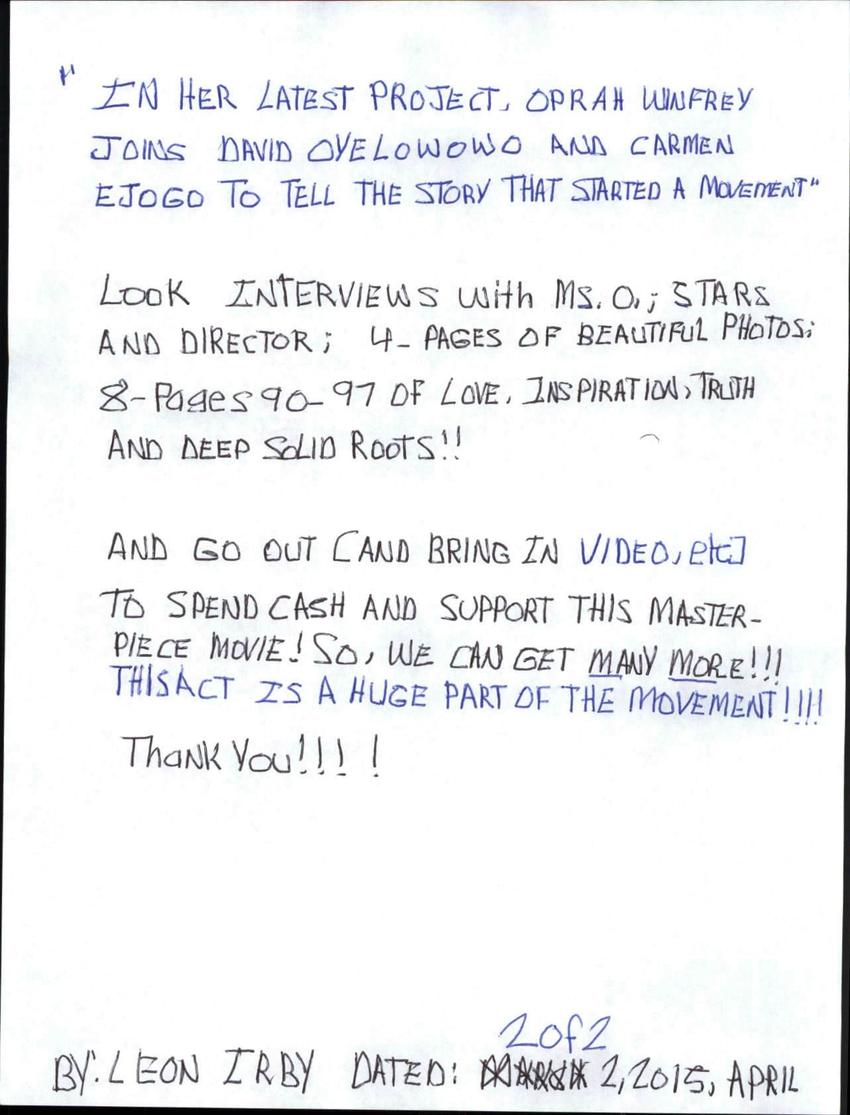 " IN HER LATEST PROJECT, OPRAH WINFREY
JOINS DAVID OYELOWOWO AND CARMEN
EJOGO TO TELL THE STORY THAT STARTED A MOVEMENT"
LOOK INTERVIEWS with Ms. O,; STARS
AND DIRECTOR; 4- PAGES OF BEAUTIFUL PHOTOS;
8-Pages 90-97 OF LOVE, INSPIRATION, TRUTH
AND DEEP SOLID ROOTS!!
AND GO OUT [AND BRING IN VIDEO, etc]
TO SPEND CASH AND SUPPORT THIS MASTER-
PIECE MOVIE! SO, WE CAN GET MANY MORE!!!
THIS ACT IS A HUGE PART OF THE MOVEMENT!!!!
THANK YOU!!! !
2 of 2
BY: LEON IRBY DATED: 2, 2015, APRIL